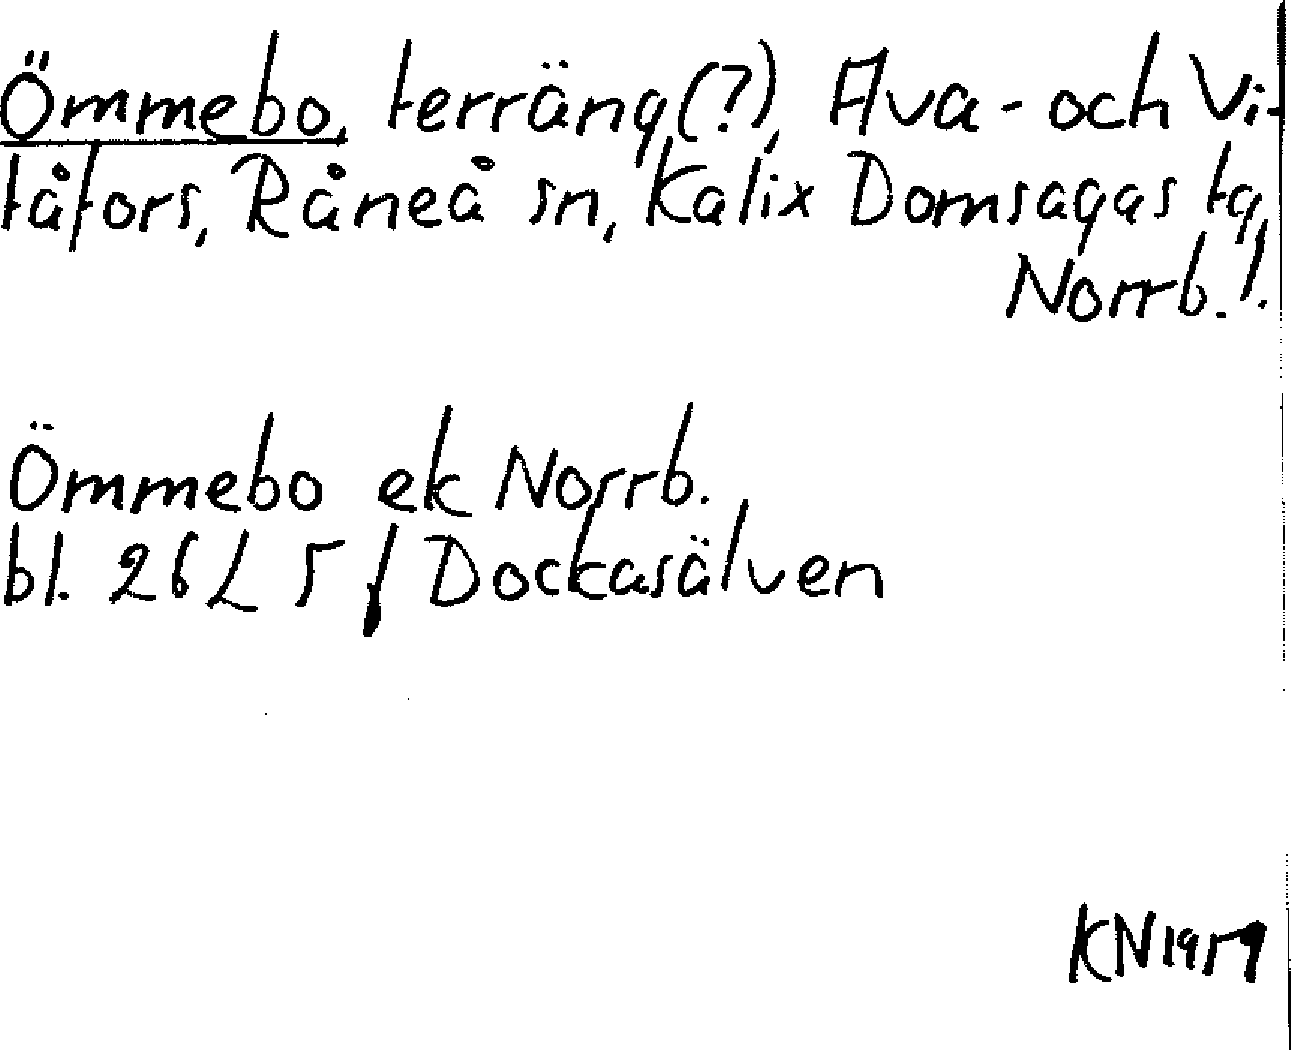 Ömmebo, terräng(?), Ava- och Vi-
tåfors, Råneå sn, Kalix Domsagas tg,
Norrb. l.
Ömmebo ek Norrb.
bl. 26 L 5 f Dockasälven
KN 1959